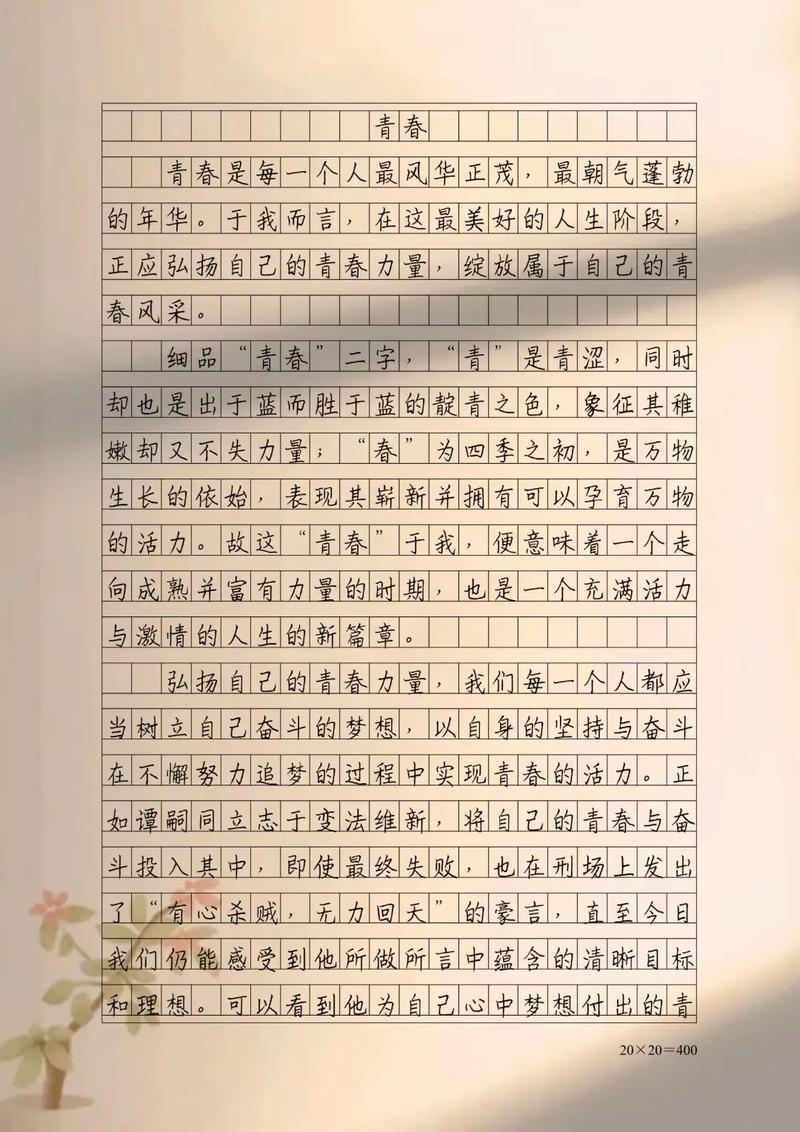 青春
青春是每一个人最风华正茂，最朝气蓬勃
的年华。于我而言，在这最美好的人生阶段，
正应弘扬自己的青春力量，绽放属于自己的青
春风采。
细品“青春”二字，“青”是青涩，同时
却也是出于蓝而胜于蓝的靛青之色，象征其稚
嫩却又不失力量；“春”为四季之初，是万物
生长的依始，表现其崭新并拥有可以孕育万物
的活力。故这“青春”于我，便意味着一个走
向成熟并富有力量的时期，也是一个充满活力
与激情的人生的新篇章。
弘扬自己的青春力量，我们每一个人都应
当树立自己奋斗的梦想，以自身的坚持与奋斗
在不懈努力追梦的过程中实现青春的活力。正
如谭嗣同立志于变法维新，将自己的青春与奋
斗投入其中，即使最终失败，也在刑场上发出
了“有心杀贼，无力回天”的豪言，直至今日
我们仍能感受到他所做所言中蕴含的清晰目标
和理想。可以看到他为自己心中梦想付出的青
20×20=400